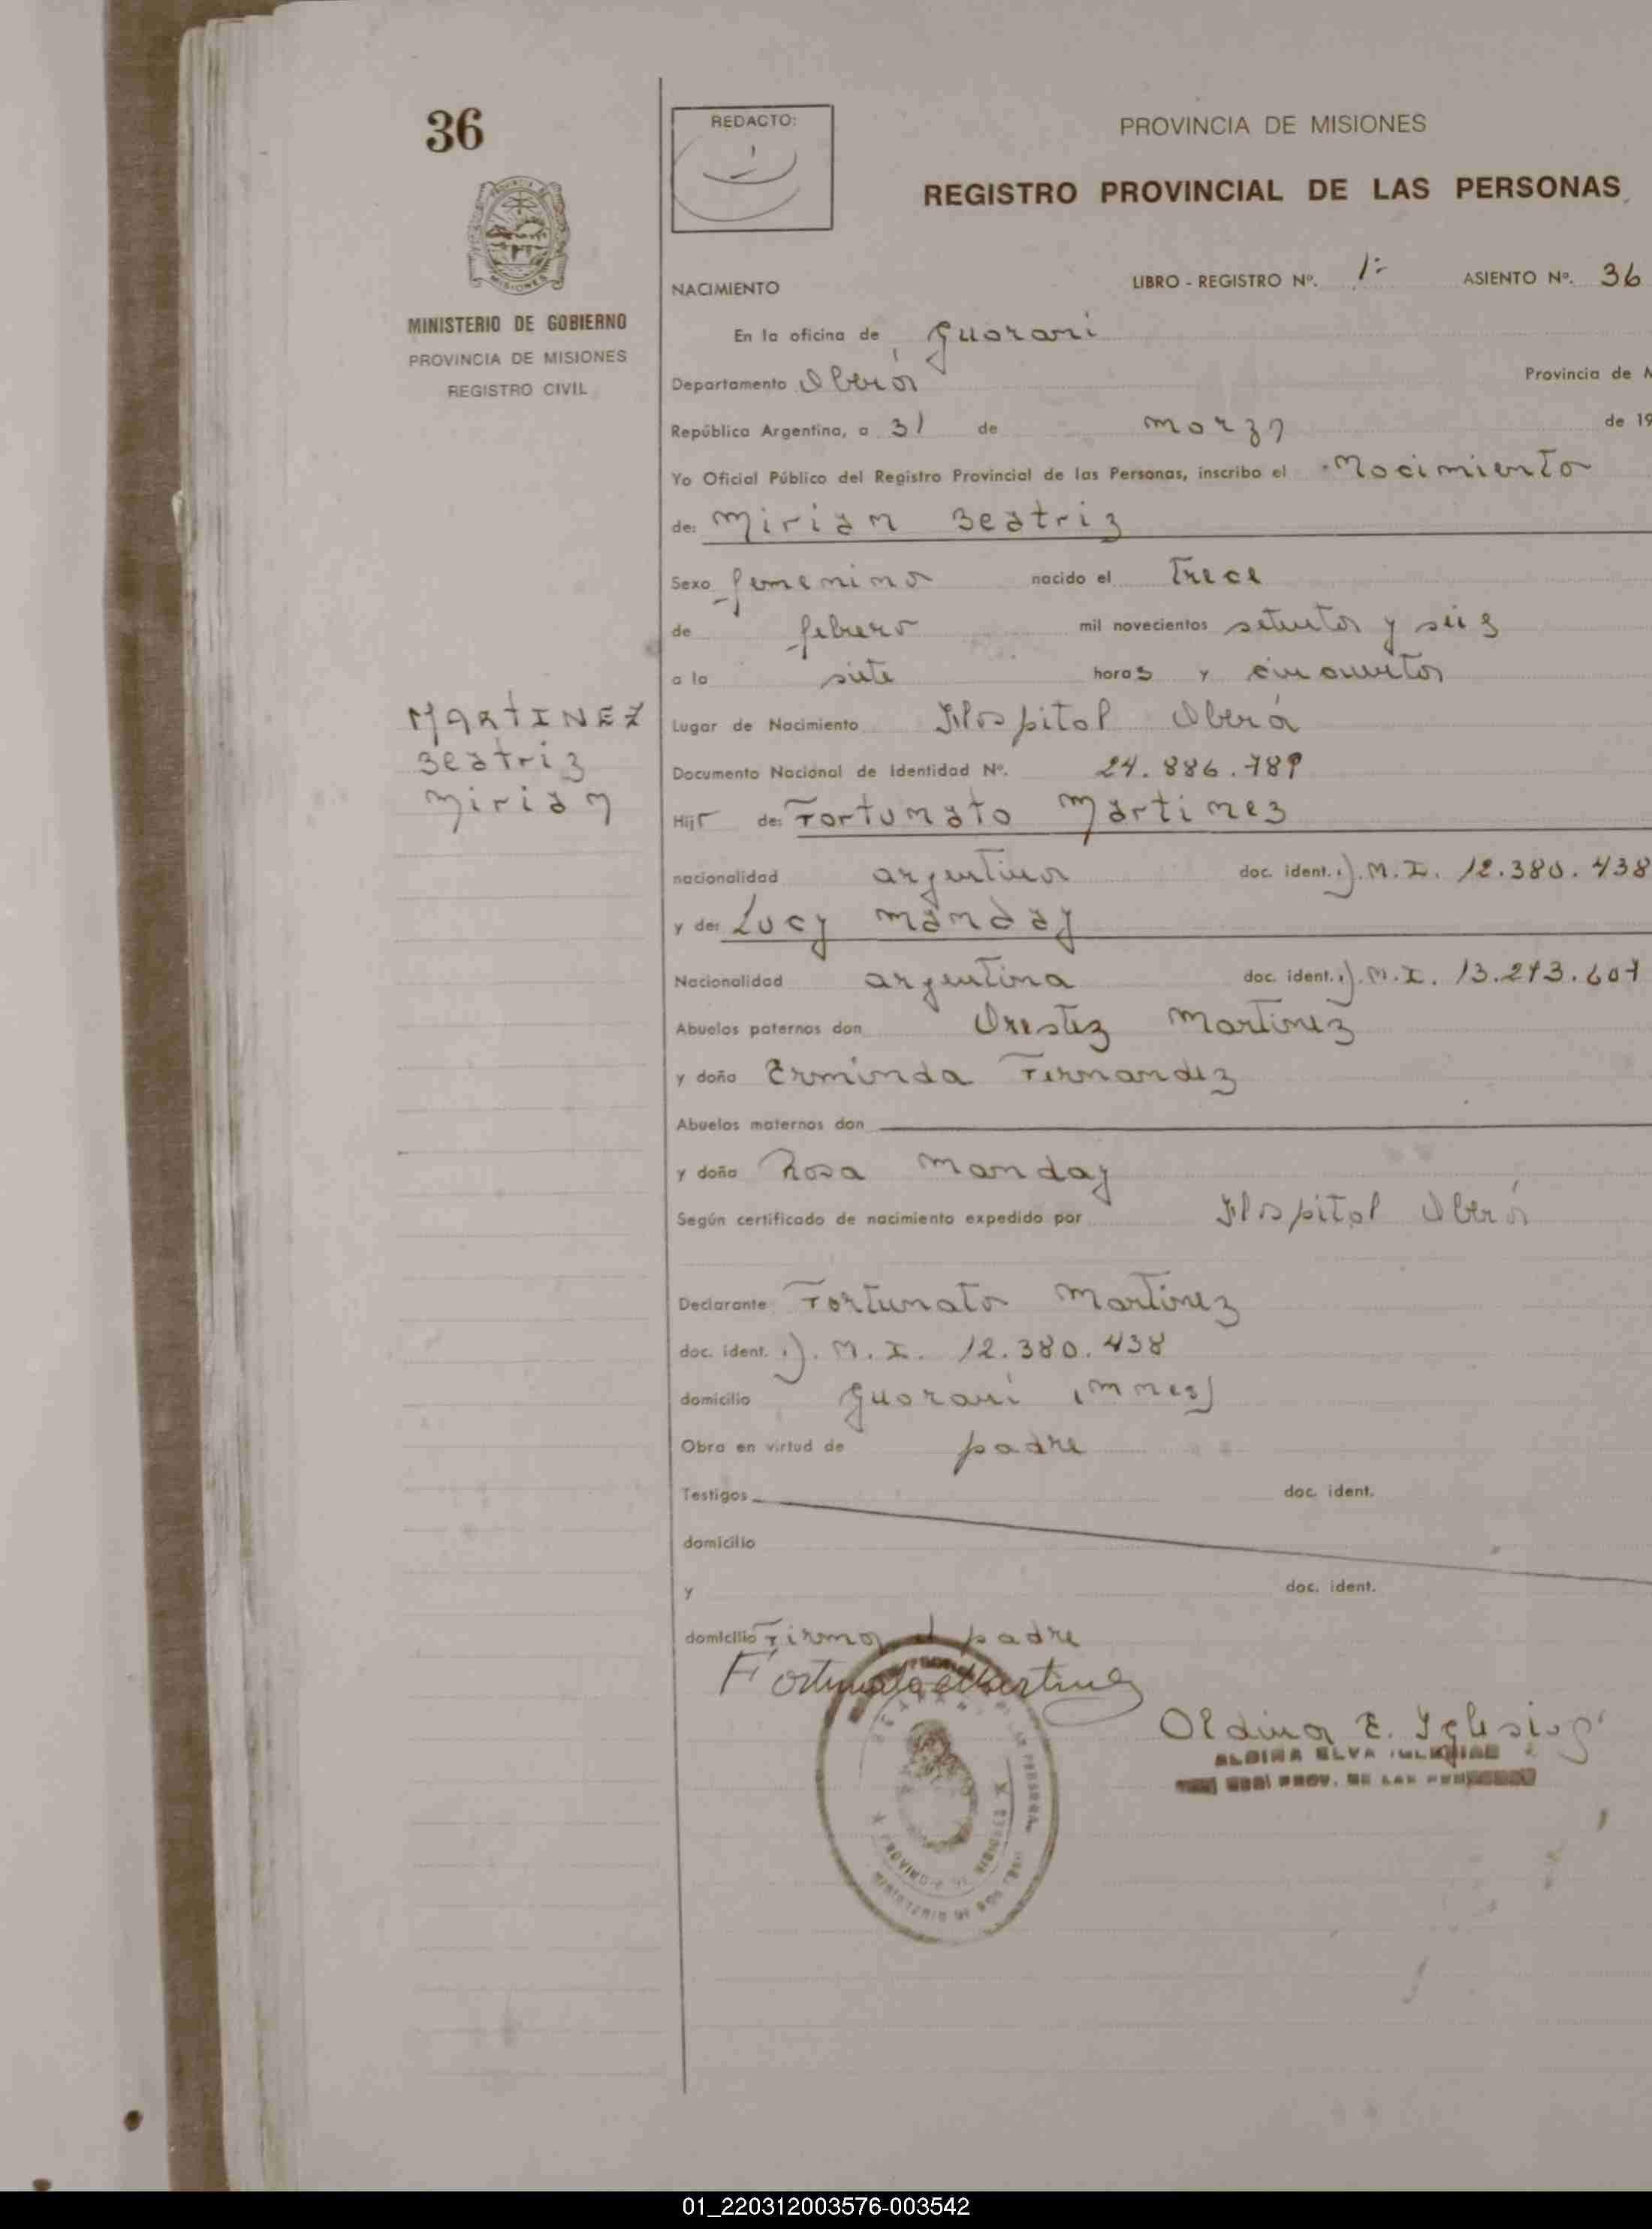 36
REDACTO:
PROVINCIA DE MISIONES
REGISTRO PROVINCIAL DE LAS PERSONAS
MINISTERIO DE GOBIERNO
PROVINCIA DE MISIONES
REGISTRO CIVIL
NACIMIENTO LIBRO - REGISTRO Nº. 1º ASIENTO Nº. 36
En la oficina de Guarani
Departamento Oberá Provincia de M
República Argentina, a 31 de marzo de 19
Yo Oficial Público del Registro Provincial de las Personas, inscribo el Nacimiento
de: Mirian Beatriz
Sexo femenino nacido el Trece
de febrero mil novecientos setenta y seis
a la siete horas y cincuenta
Lugar de Nacimiento Hospital Oberá
Documento Nacional de Identidad Nº. 24.886.789
MARTINEZ
Beatriz
Mirian
Hija de: Fortunato Martinez
nacionalidad argentina doc. ident. M.I. 12.380.438
y de: Lucy Manday
Nacionalidad argentina doc. ident. M.I. 13.273.607
Abuelos paternos don Orestez Martinez
y doña Erminda Fernandez
Abuelos maternos don
y doña Rosa Manday
Según certificado de nacimiento expedido por Hospital Oberá
Declarante Fortunato Martinez
doc. ident. M.I. 12.380.438
domicilio Guarani (Mnes)
Obra en virtud de padre
Testigos doc. ident.
domicilio
y doc. ident.
domicilio Firma el padre
Fortunato Martinez
Aldina E. Iglesias
ALDINA ELVA IGLESIAS
PROV. DE LAS
PROVINCIA DE MISIONES
01_220312003576-003542